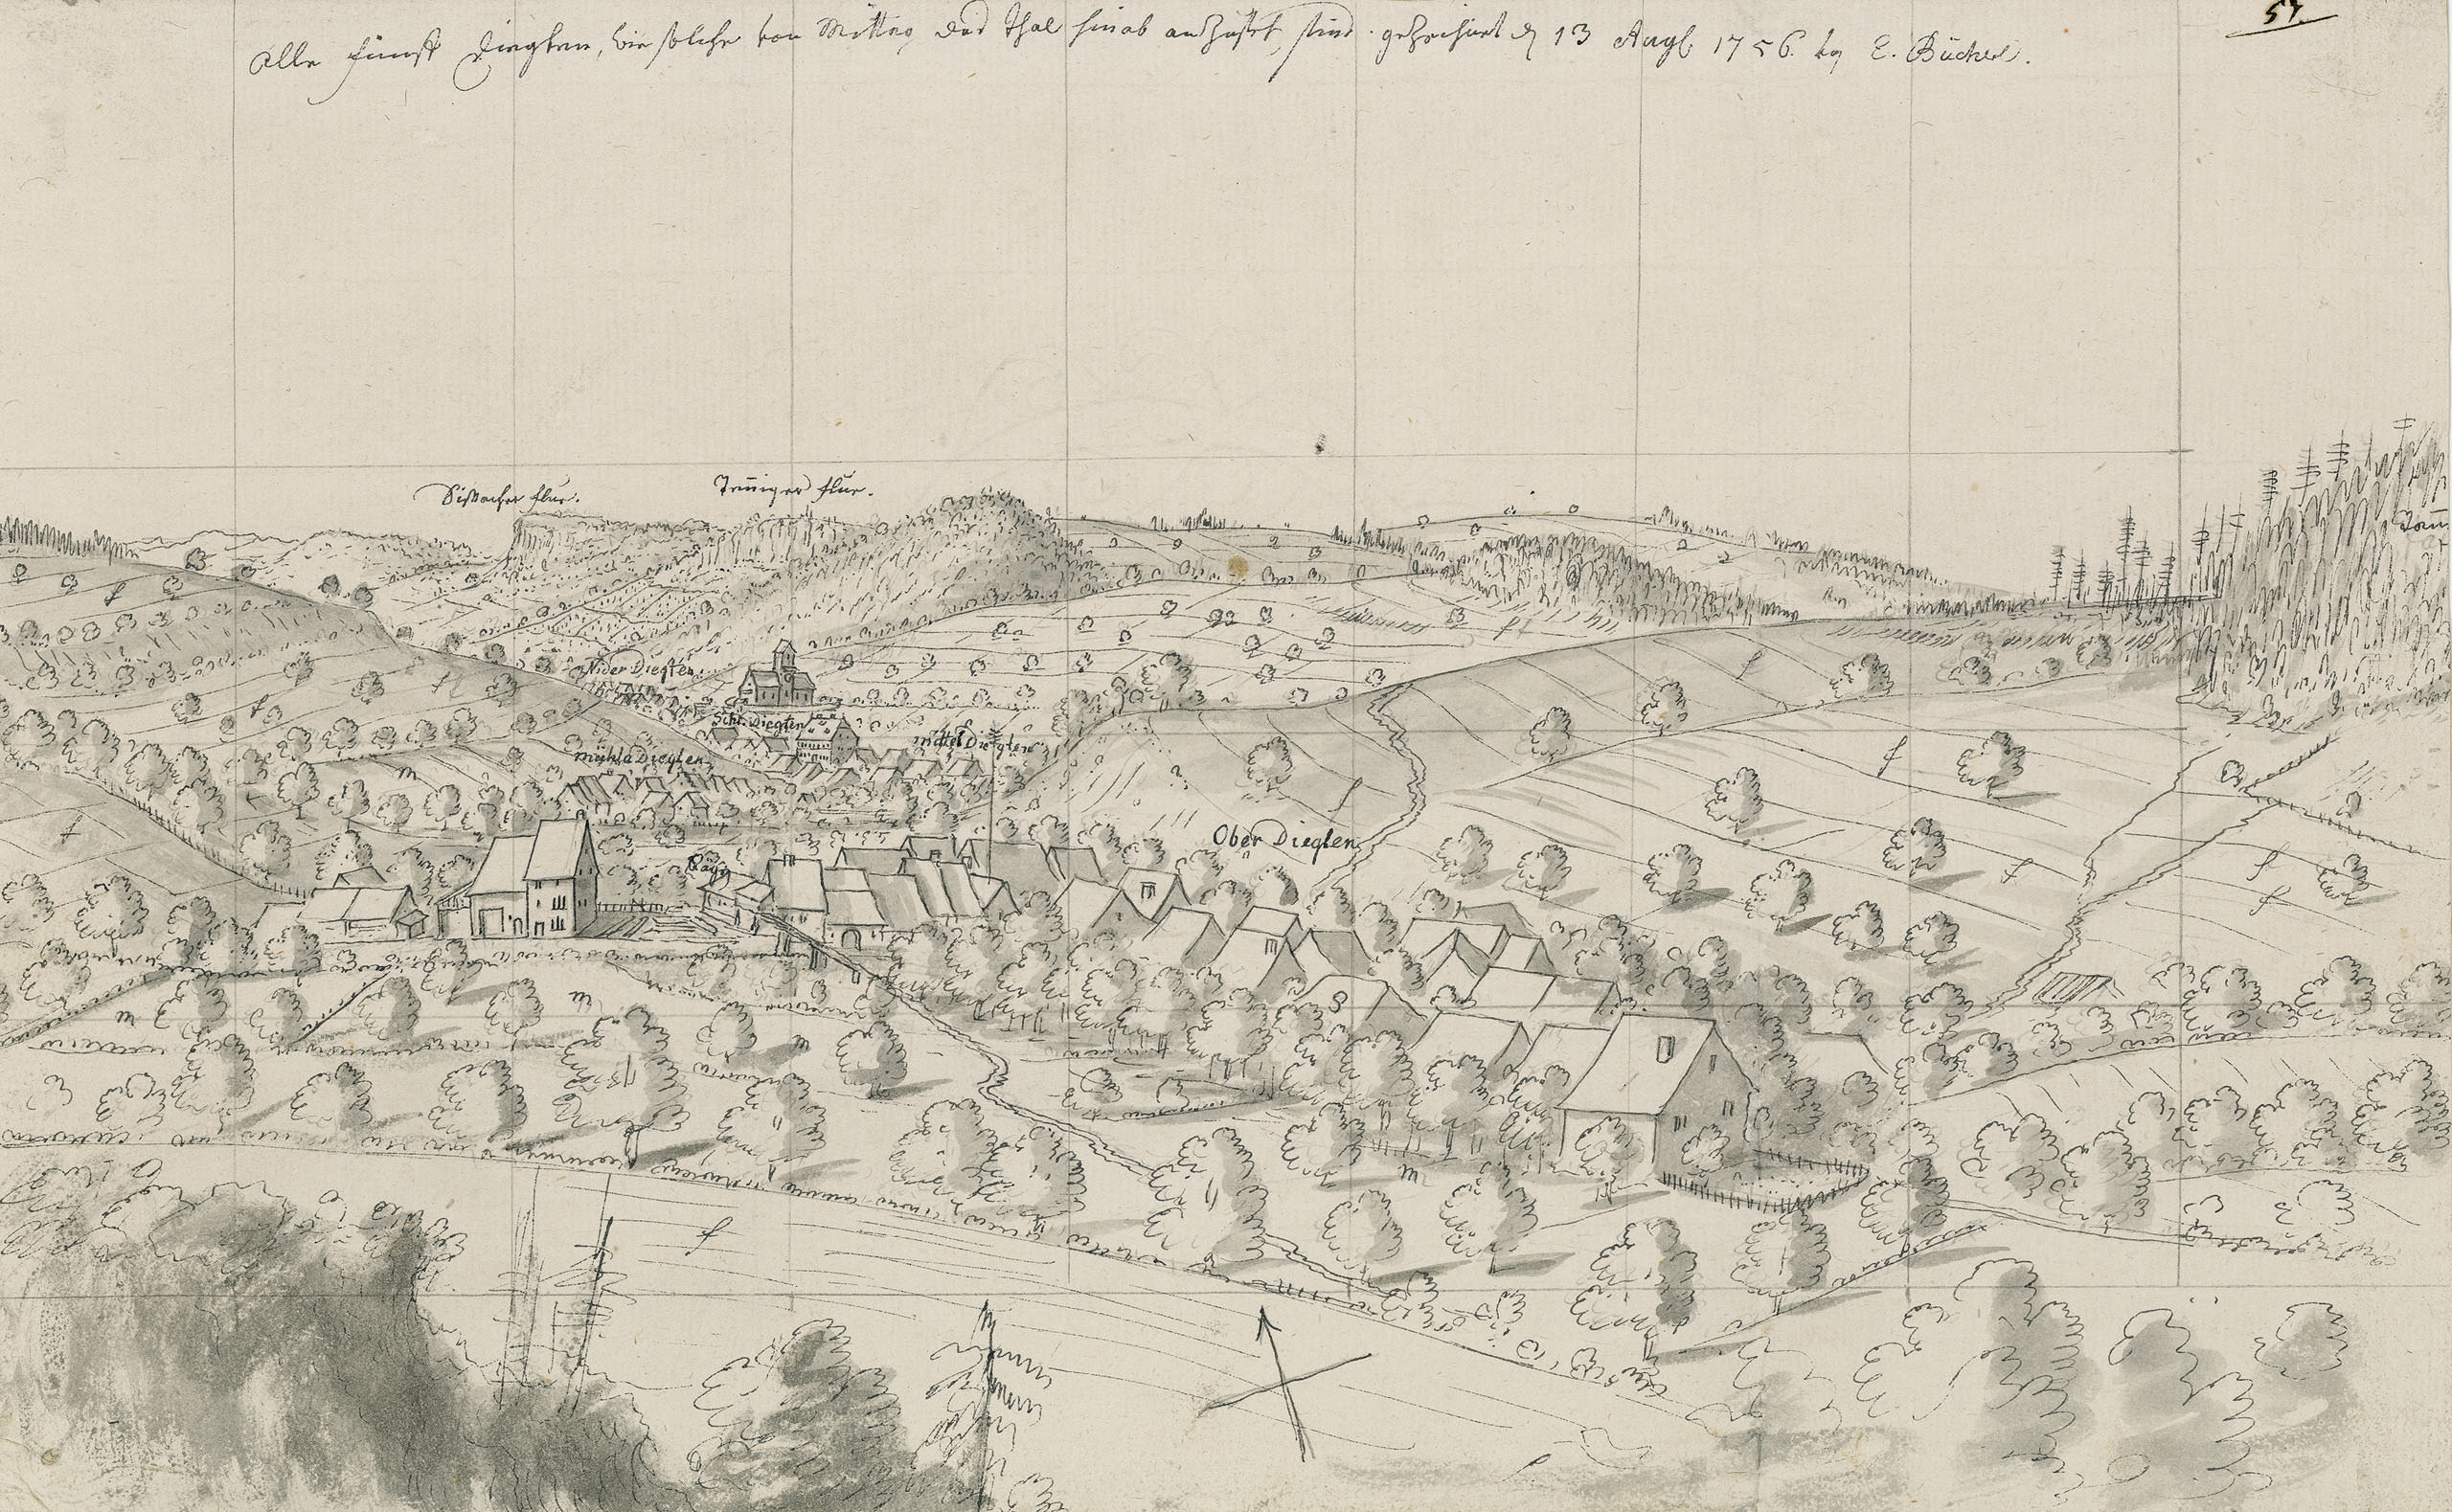 57.
Alle fünff Dieghten, wie solche von Mittag das Thal hinab anzusehen sind. gezeichnet d 13 Augs. 1756. by E. Büchel.
Sissacher flue.
Tenniger flue.
Nider Diegten.
Schl. Diegten
mittel Diegten
mühle Diegten
Ober Diegten
Rägi